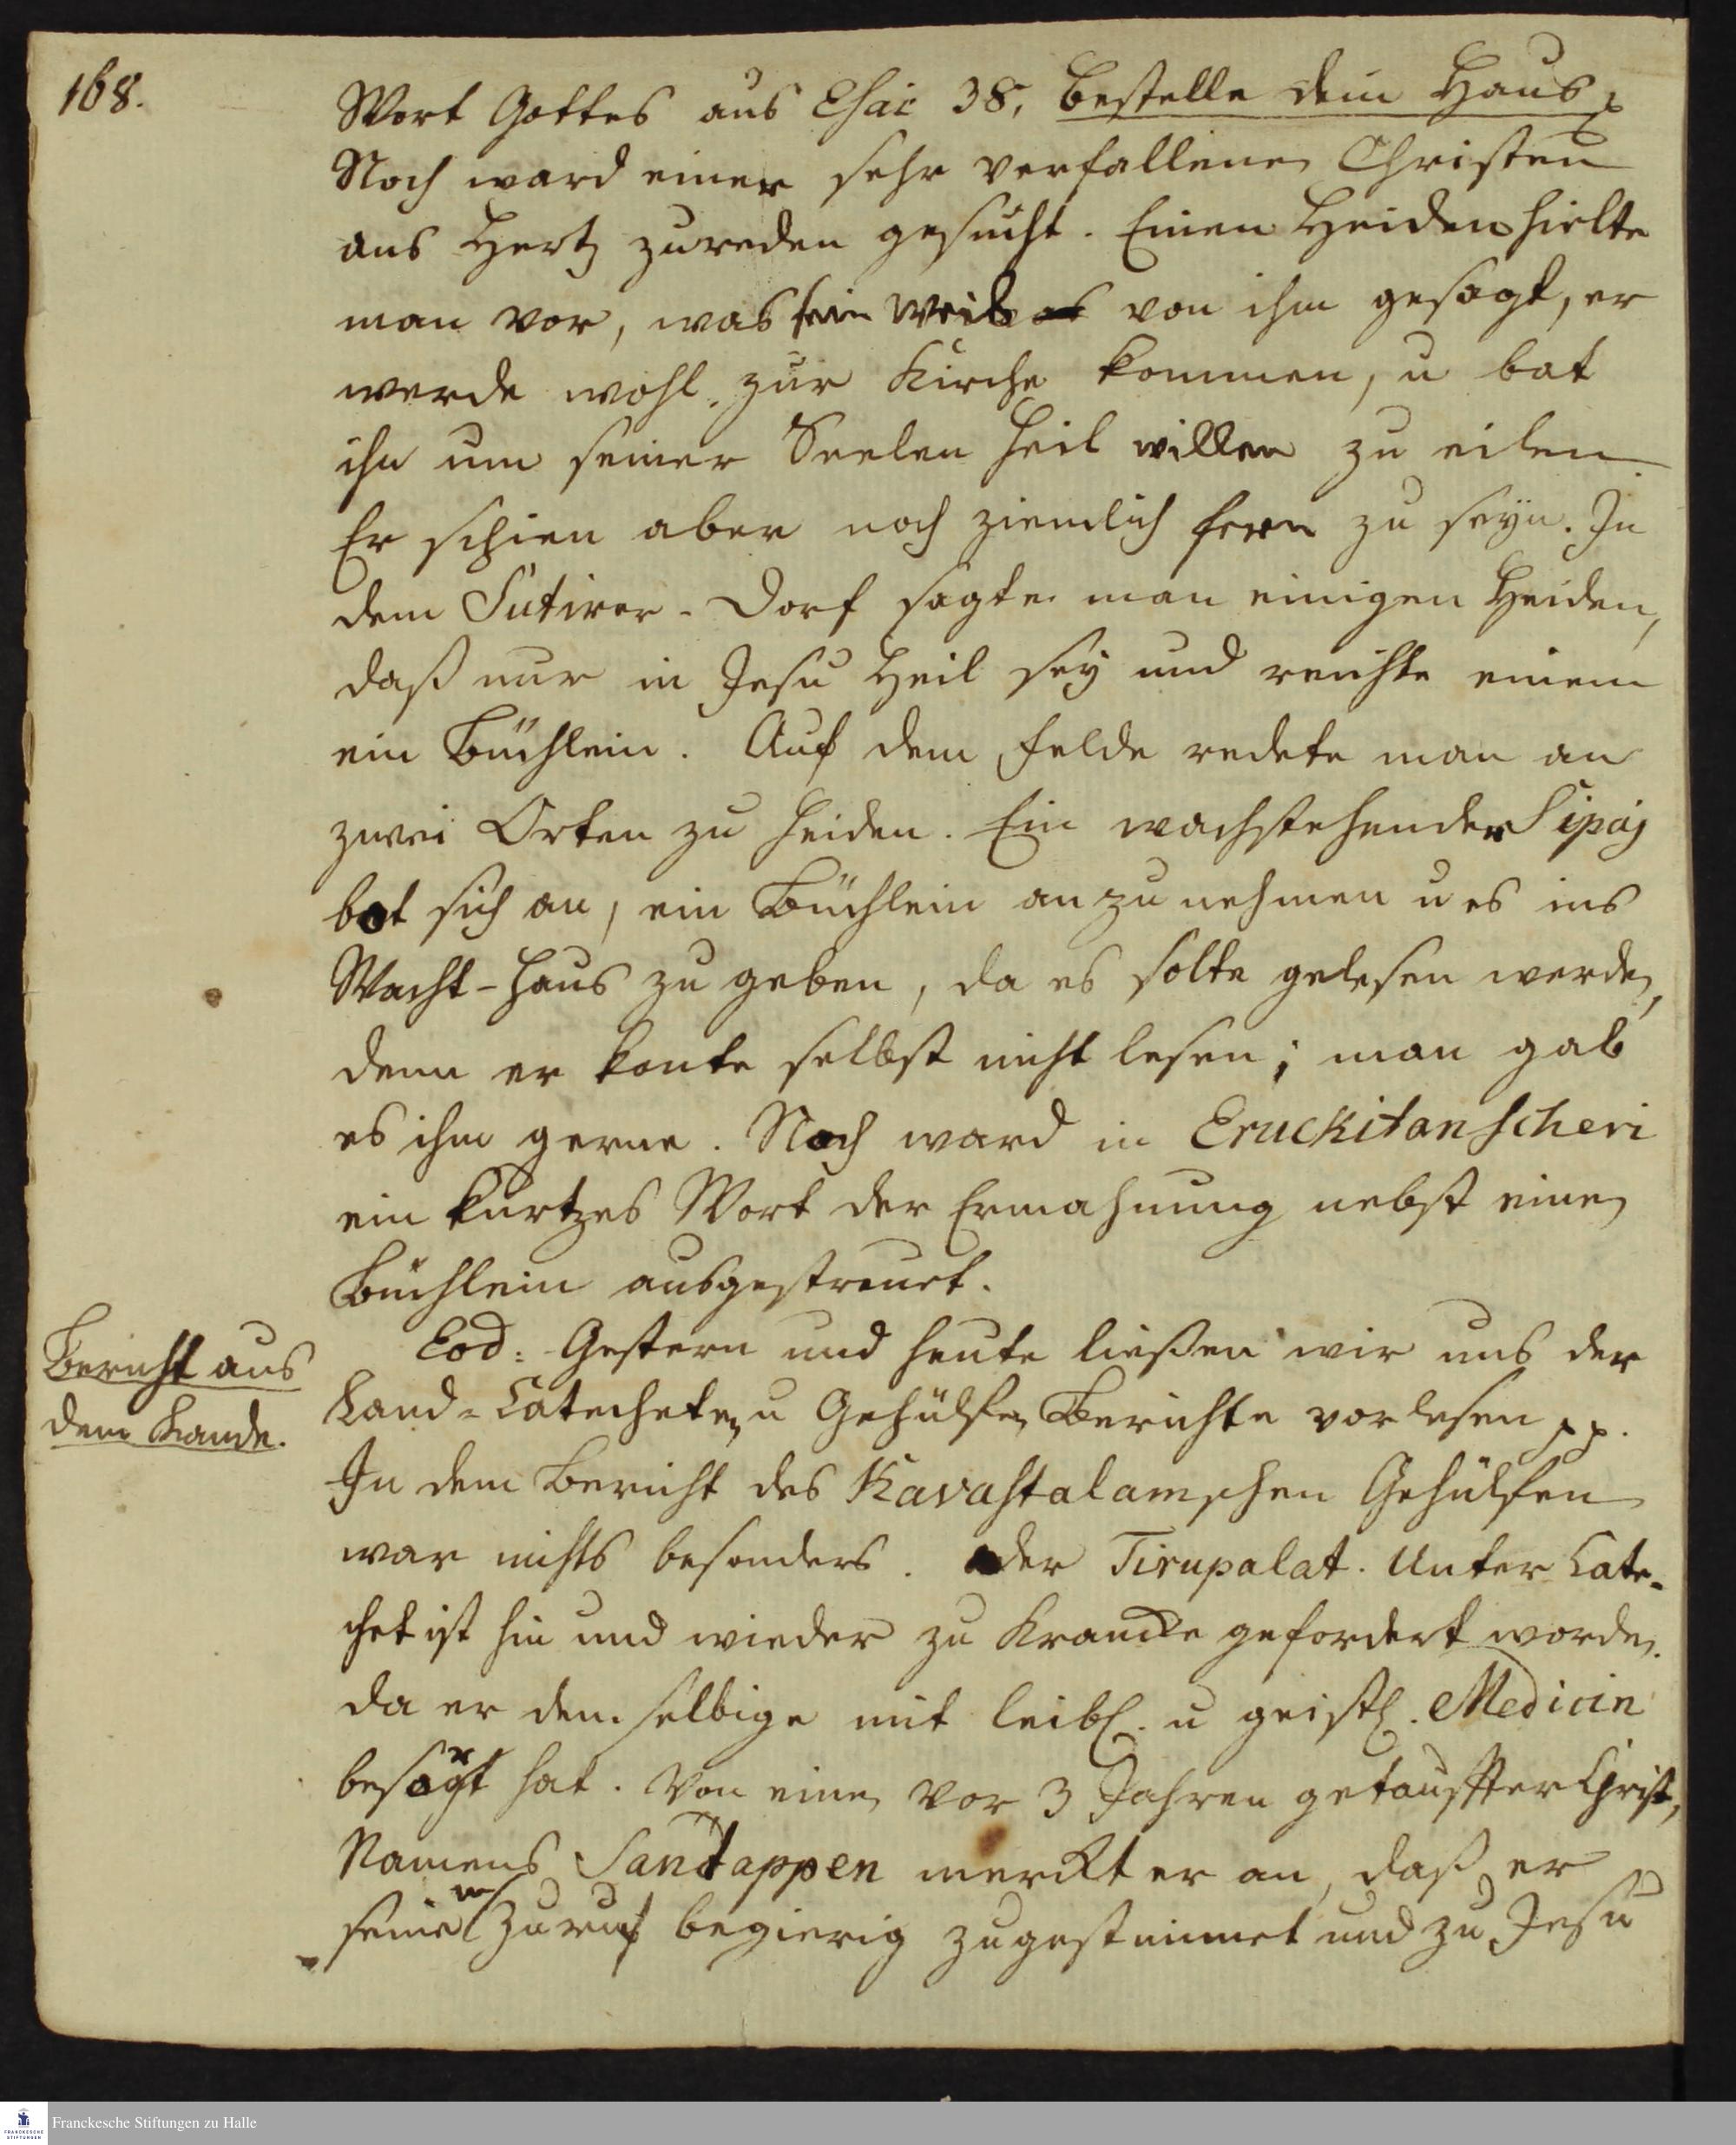 168.
Wort Gottes aus Esaie 38, bestelle dein Haus
Noch ward einer sehr verfallenen Christen
ans Hertz zureden gesucht. Einen Heiden hielte
man vor, was sein Weib von ihm gesagt, er
werde wohl zur Kirche kommen, u bat
ihn um seiner Seelen Heil willen zu eilen.
Er schien aber noch ziemlich fern zu seyn. In
dem Sutirer-Dorf sagte man einigen Heiden,
daß nur in Jesu Heil sey und reichte einem
ein Büchlein. Auf dem Felde redete man an
zwei Orten zu Heiden. Ein wachstehender Sipaj
bot sich an, ein Büchlein anzunehmen u es ins
Wacht-Haus zu geben, da es solte gelesen werden,
denn er konte selbst nicht lesen; man gab
es ihm gerne. Noch ward in Eruckitanscheri
ein kurtzes Wort der Ermahnung nebst einem
Büchlein ausgestreuet.
Bericht aus
dem Lande.
Eod: Gestern und heute ließen wir uns der
Land-Catecheten u Gehülfen Berichte vorlesen pp.
In dem Bericht des Kavastalamschen Gehülfen
war nichts besonders. der Tirupalat. Unter Cate-
chet ist hin und wieder zu Krancke gefordert worden.
da er dem selbige mit leibl. u geistl. Medicin
besorgt hat. Von einem vor 3 Jahren getauffter Christ,
Namens Sandappen merckt er an, daß er
seinem Zuruf begierig zugestimmet und zu Jesu
Franckesche Stiftungen zu Halle
FRANCKESCHE
STIFTUNGEN